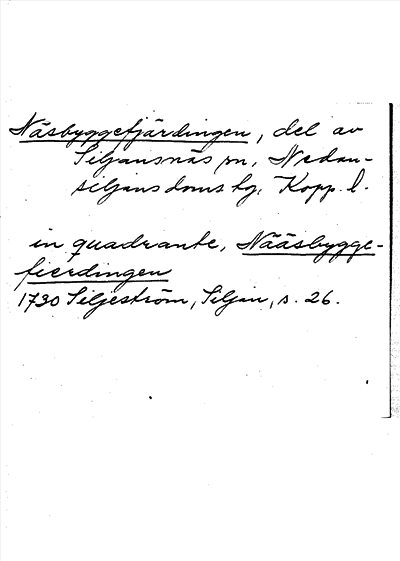 Näsbyggefjärdingen, del av
Siljansnäs sn, Nedan-
siljans doms hg, Kopp. l.
in quadrante, Nääsbygge-
fierdingen
1730 Siljeström, Siljan, s. 26.